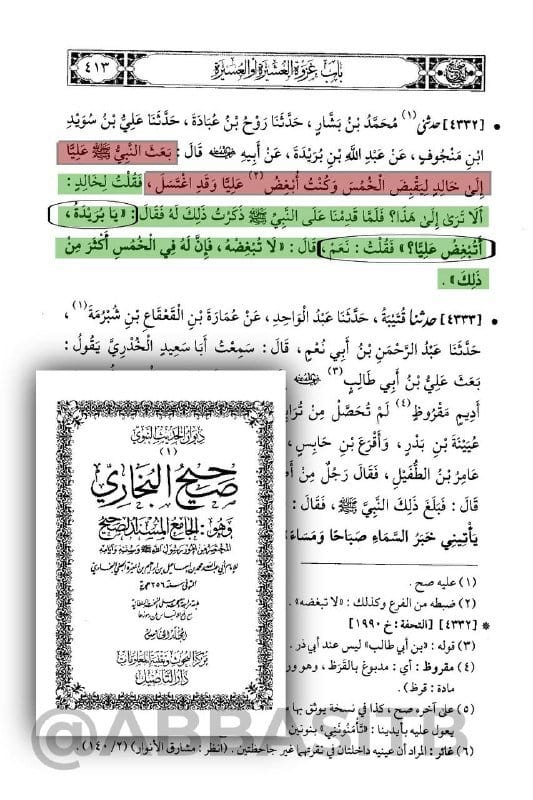 باب غزوة العشيرة أو العسيرة
٤١٣
• [٤٣٣٢] حدثني (١) مُحَمَّدُ بْنُ بَشَّارٍ ، حَدَّثَنَا رَوْحُ بْنُ عُبَادَةَ ، حَدَّثَنَا عَلِيُّ بْنُ سُوَيْدِ
ابْنِ مَنْجُوفٍ ، عَنْ عَبْدِ اللَّهِ بْنِ بُرَيْدَةَ ، عَنْ أَبِيهِ قَالَ : بَعَثَ النَّبِيُّ ﷺ عَلِيًّا
إِلَى خَالِدٍ لِيَقْبِضَ الْخُمُسَ وَكُنْتُ أُبْغِضُ (٢) عَلِيًّا وَقَدِ اغْتَسَلَ ، فَقُلْتُ لِخَالِدٍ :
أَلَا تَرَى إِلَى هَذَا؟ فَلَمَّا قَدِمْنَا عَلَى النَّبِيِّ ﷺ ذَكَرْتُ ذَلِكَ لَهُ فَقَالَ : « يَا بُرَيْدَةُ ،
أَتُبْغِضُ عَلِيًّا؟ » فَقُلْتُ : نَعَمْ ، قَالَ : « لَا تُبْغِضْهُ ، فَإِنَّ لَهُ فِي الْخُمُسِ أَكْثَرَ مِنْ
ذَلِكَ » .
• [٤٣٣٣] حدثنا قُتَيْبَةُ ، حَدَّثَنَا عَبْدُ الْوَاحِدِ ، عَنْ عُمَارَةَ بْنِ الْقَعْقَاعِ بْنِ شُبْرُمَةَ (١) ،
حَدَّثَنَا عَبْدُ الرَّحْمَنِ بْنُ أَبِي نُعْمٍ ، قَالَ : سَمِعْتُ أَبَا سَعِيدٍ الْخُدْرِيَّ يَقُولُ :
بَعَثَ عَلِيُّ بْنُ أَبِي طَالِبٍ (٣)
أَدِيمٍ مَقْرُوظٍ (٤) لَمْ تُحَصَّلْ مِنْ
عُيَيْنَةَ بْنِ بَدْرٍ ، وَأَقْرَعَ بْنِ حَابِسٍ ،
عَامِرُ بْنُ الطُّفَيْلِ ، فَقَالَ رَجُلٌ مِنْ
قَالَ : فَبَلَغَ ذَلِكَ النَّبِيَّ ﷺ ، فَقَالَ :
يَأْتِينِي خَبَرُ السَّمَاءِ صَبَاحًا وَمَسَاءً
(١) عليه صح .
(٢) ضبطه من الفرع وكذلك : «لا تبغضه» .
* [٤٣٣٢] [التحفة : خ ١٩٩٠]
(٣) قوله : «بن أبي طالب» ليس عند أبي ذر .
(٤) مقروظ : أي : مدبوغ بالقَرَظ ، وهو
مادة : قرظ) .
(٥) على آخره صح ، كذا في نسخة يوثق بها
يعول عليه بأيدينا : «تَأْمَنُونَنِي» بنونين
(٦) غائر : المراد أن عينيه داخلتان في نقرتهما غير جاحظتين . (انظر : مشارق الأنوار) (٢/ ١٤٠) .
ديوان الحديث النبوي
(١)
صحيح البخاري
وهو : الجامع المسند الصحيح
المختصر من أمور رسول الله ﷺ وسننه وأيامه
للإمام أبي عبد الله محمد بن إسماعيل بن إبراهيم بن المغيرة الجعفي البخاري
المتوفى سنة ٢٥٦ هجرية
المجلد الخامس
مركز البحوث وتقنية المعلومات
دار التأصيل
@ABBASITB